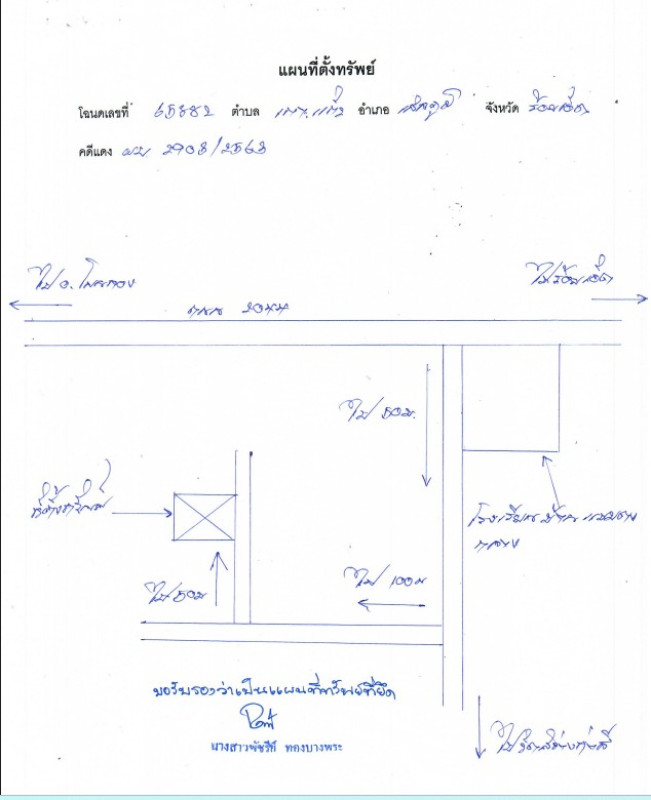 แผนที่ตั้งทรัพย์
โฉนดเลขที่ 65882 ตำบล อำเภอ จังหวัด ร้อยเอ็ด
คดีแดง ผบ. 2903/2563
ไป อ. โพนทอง
ไปร้อยเอ็ด
ถนน 2044
ไป 50 ม.
ที่ตั้งทรัพย์
โรงเรียนบ้าน
ไป 50 ม
ไป 100 ม
ขอรับรองว่าเป็นแผนที่ทรัพย์ที่ยึด
นางสาวพัชรีห์ ทองบางพระ
ไป